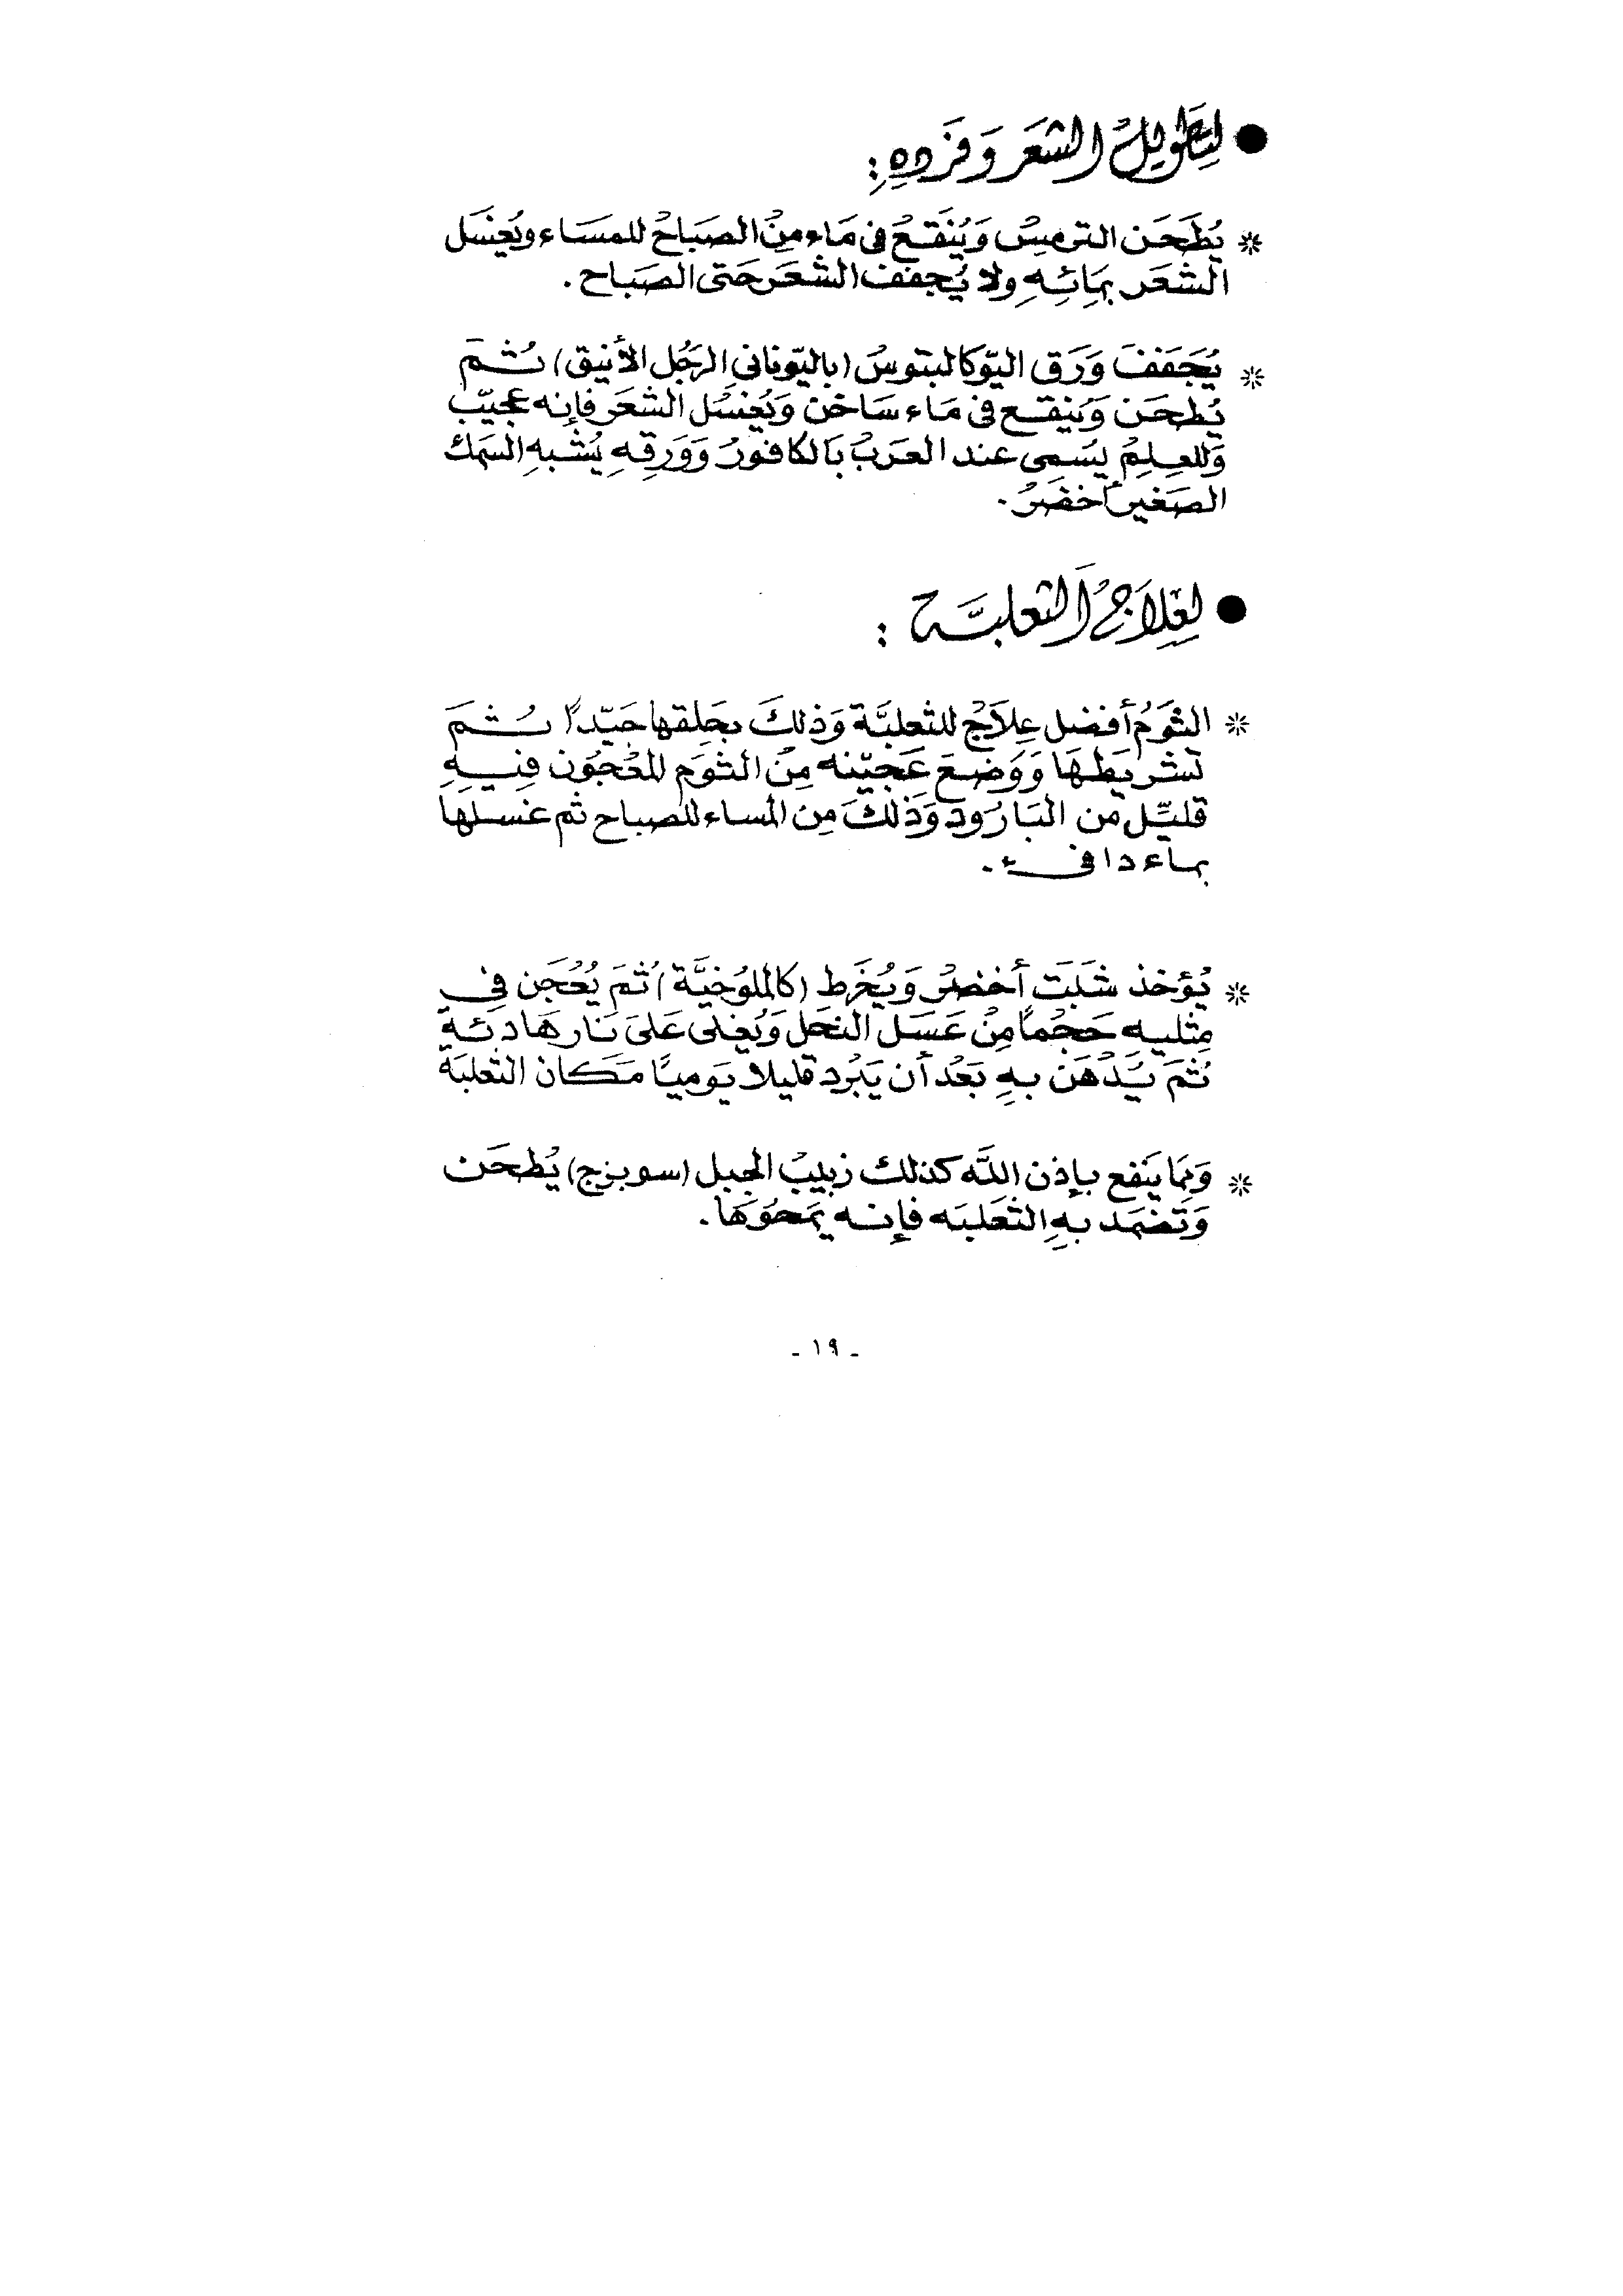 ● لِتَطويلُ الشعَر وَفَرده:
* يُطَحَن الترمسُ وَيُنَقَعُ في مَاء مِنُ الصَبَاحُ للمسَاء ويُغسَل
الشعَر بمَائِهِ ولا يُجفف الشعَر حَتى الصَباح .
* يُجَففَ وَرَق اليّوكالبتوسُ (باليّوناني الرَجُل الأنيق) ثُمَ
يُطحَن وَيُنقع في مَاء سَاخن وَيُغسُل الشعَر فإنه عجيّب
وَللعِلمُ يسَمى عند العَربُ بَالكافورُ وَوَرقِهِ يُشبهِ السَمك
الصَغير أخضَرُ .
● لعِلاَجُ الثعلبَّة :
* الثوَمُ أفضل عِلاَجُ للثعلبَّة وَذلكَ بحَلِقها جَيّداً ثُمَ
تشريَطهَا وَوَضعَ عَجيّنه مِنُ الثوَم المعُجوُن فِيهِ
قليّل مَن البَارُود وَذلكَ مِن المساء للصباح ثم غسلها
بماء دافىء .
* يُؤخذ شَبَت أخضرُ وَيُخَرط (كالملوُخيَّة) ثُمَ يُعُجَن فِي
مِثليه حَجُماً مِنُ عَسَل النحَل وَيُغلى عَلىَ نَار هَادئة
ثُمَ يَدُهَن بهِ بَعُد أن يَبُرد قليلا يَوميًا مَكان الثعلبَة
* وَمما يَنفع بإذن الله كذلك زبيبُ الجبل (سويزج) يُطحَن
وَتضمَد بهِ الثعَلبَه فإنه يَمحُوَهَا .
- ١٩ -